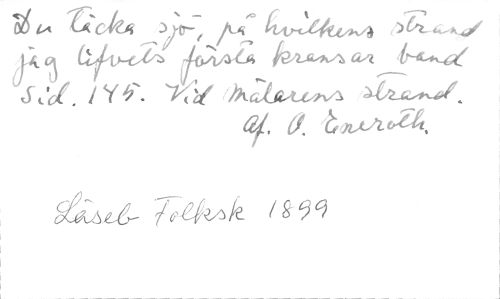 Du täcka sjö, på hvilkens strand
jag lifvets första kransar band
Sid. 145. Vid Mälarens strand.
Af. O. Eneroth.
Läseb Folksk 1899